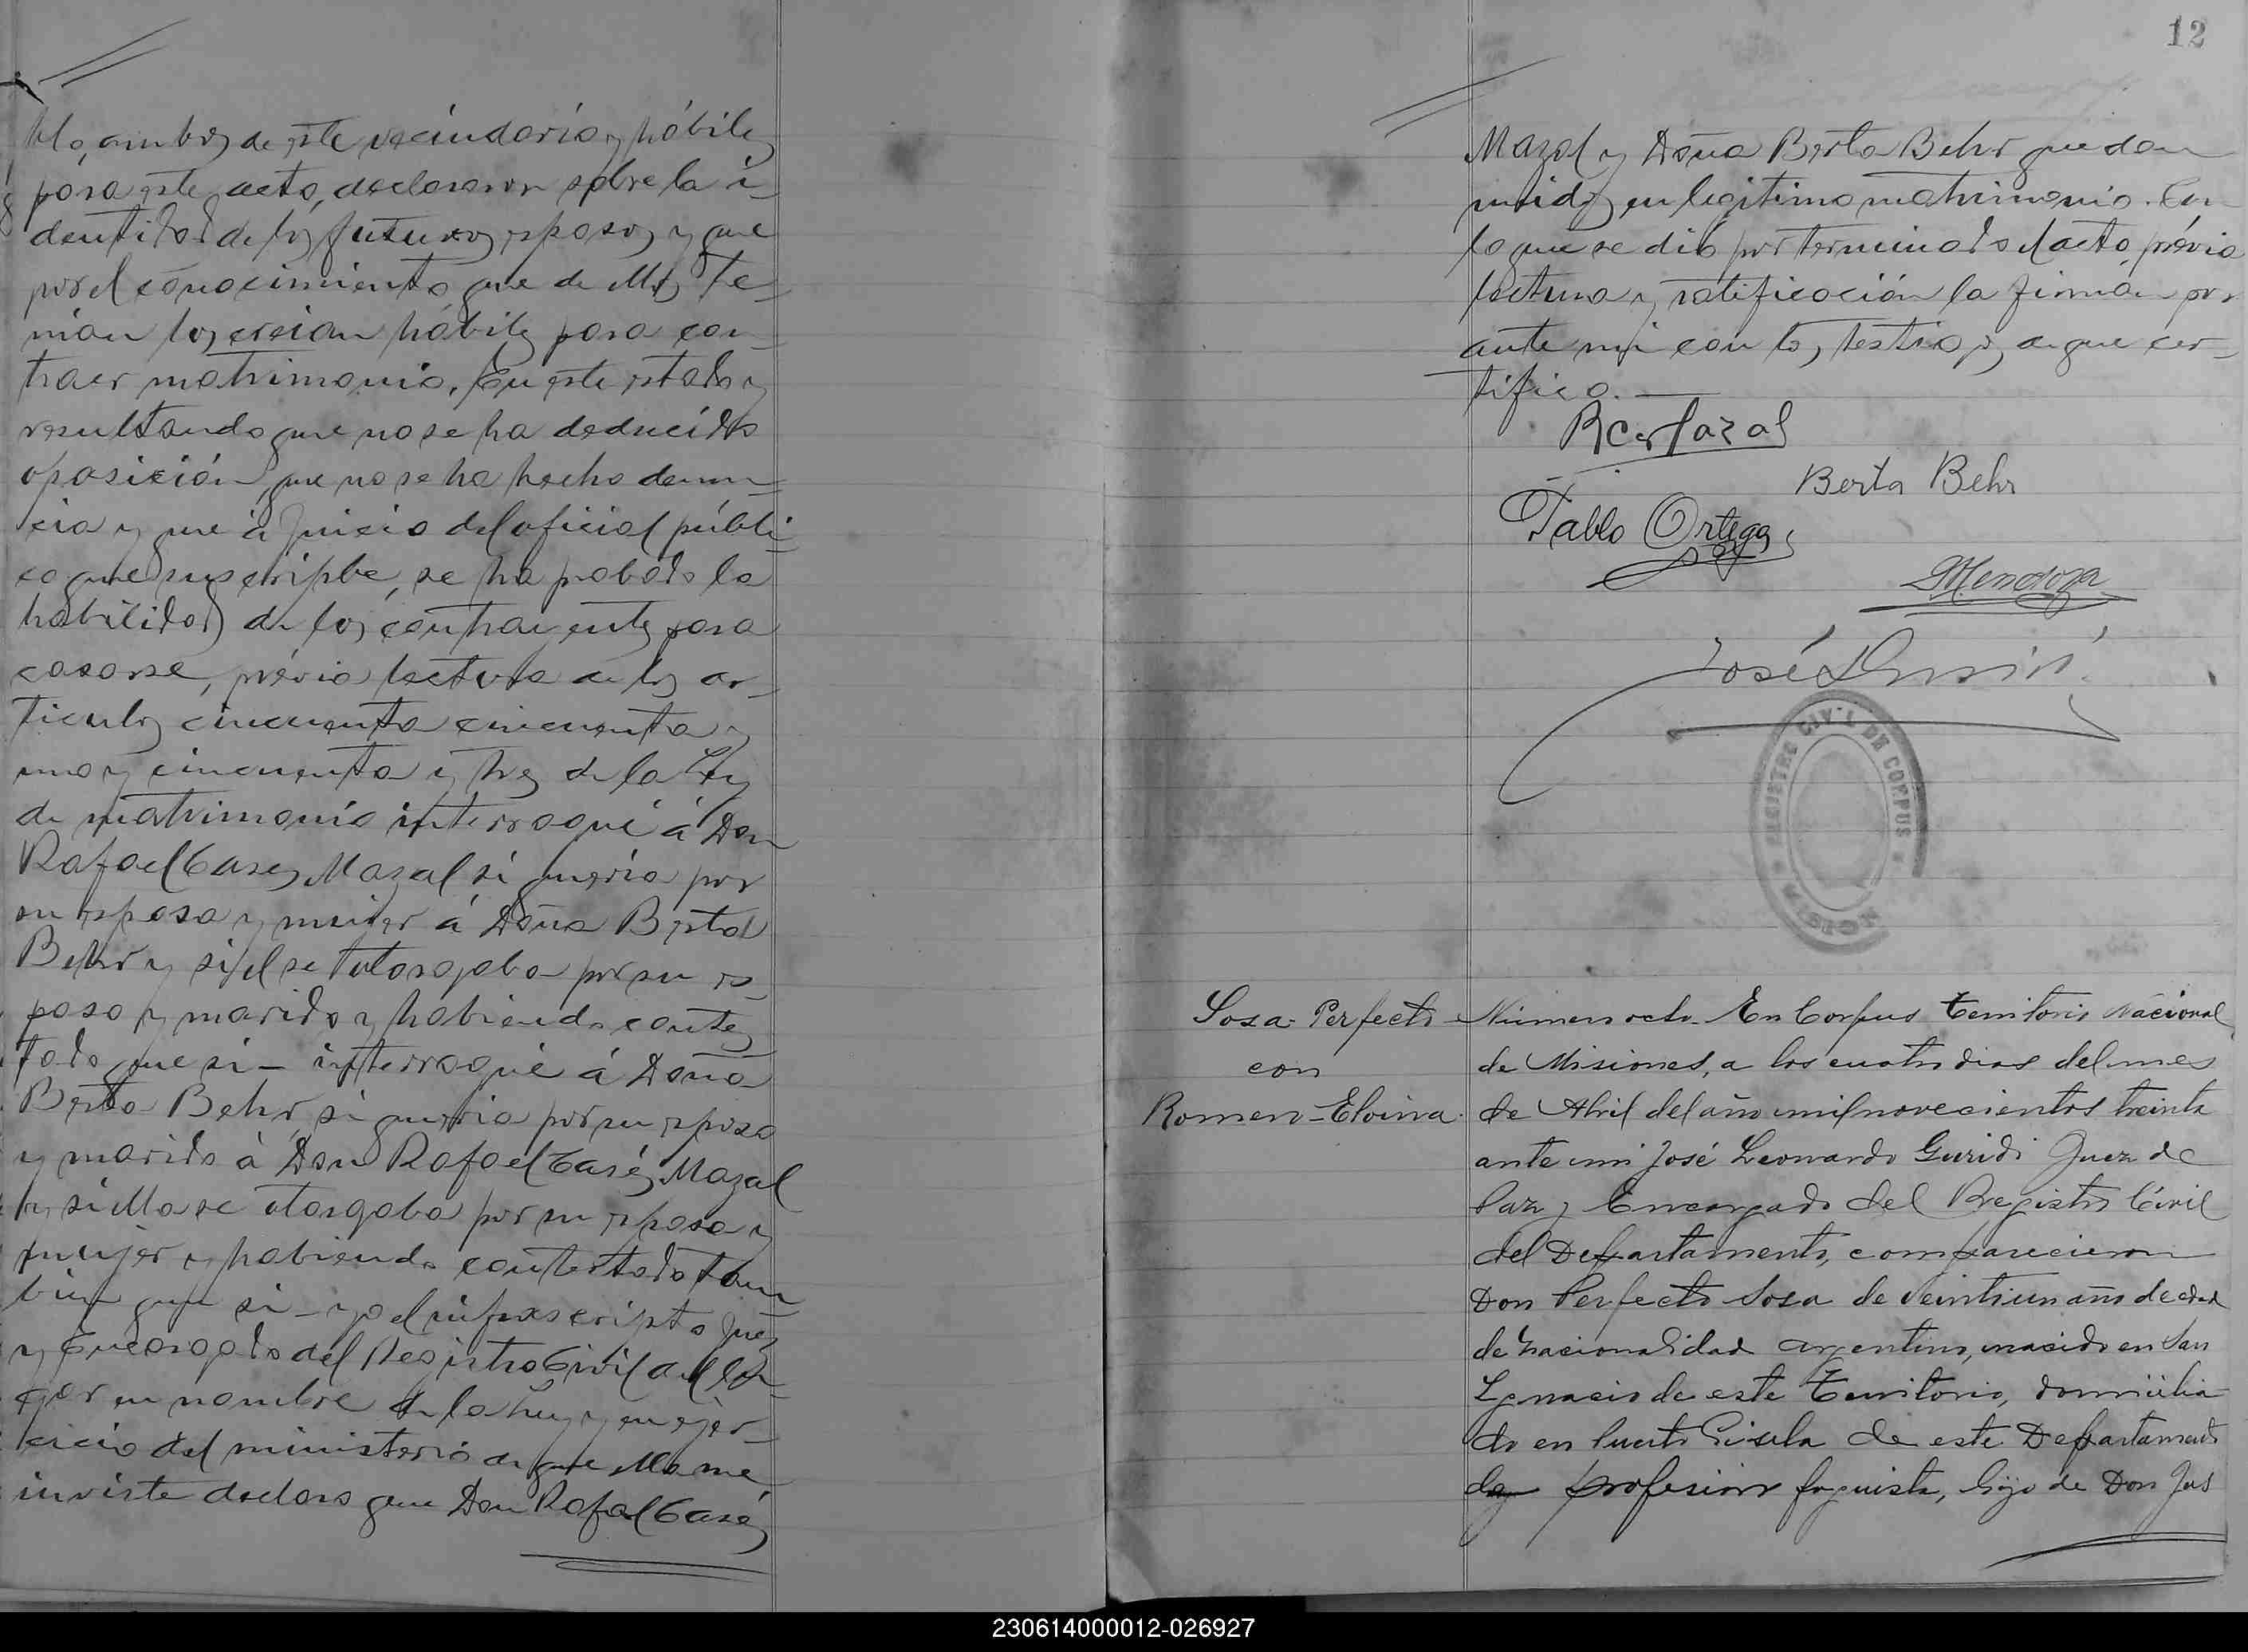 ambos de este vecindario y hábiles
para este acto, declararon sobre la i-
dentidad de los futuros esposos y que
por el conocimiento que de ellos te-
nian los creian hábiles para con-
traer matrimonio. En este estado y
resultando que no se ha deducido
oposición, que no se ha hecho denun-
cia y que á juicio del oficial públi-
co que suscripbe, se ha probado la
habilidad de los contrayentes para
casarse, prévia lectura de los ar-
ticulos cincuenta cincuenta y
uno y cincuenta y tres de la Ley
de matrimonio interrogué á Don
Rafael Cases Mazal si queria por
su esposa y mujer á Doña Berta
Behr y si el se otorgaba por su es-
poso y marido y habiendo contes
tado que si - interrogué á Doña
Berta Behr, si queria por su esposo
y marido á Don Rafael Casés Mazal
y si ella se otorgaba por su esposa y
mujer y habiendo contestado tam
bien que si - yo el infrascripto Juez
y Encargado del Registro Civil del lu-
gar en nombre de la Ley y en ejer-
cicio del ministerio de que ella me
inviste declaro que Don Rafael Casés
12
Mazal y Doña Berta Behr quedan
unidos en legitimo matrimonio. Con
lo que se dió por terminado el acto, prévia
lectura y ratificación la firman por
ante mi con los testigos, de que cer-
tifico.
Berta Behr
Pablo Ortega
Mendoza
José
REGISTRO CIVIL DE CORPUS
Sosa Perfecto
con
Romero - Eloina
Número ocho - En Corpus Territorio Nacional
de Misiones, a los cuatro dias del mes
de Abril del año mil novecientos treinta
ante mi José Leonardo Guridi Juez de
Paz y Encargado del Registro Civil
del Departamento, comparecieron
Don Perfecto Sosa de veintiun año de edad
de nacionalidad argentino, nacido en San
Ignacio de este Territorio, domicilia
do en Puerto Gisela de este Departamento
de profesion foguista, hijo de Don Jus
230614000012-026927